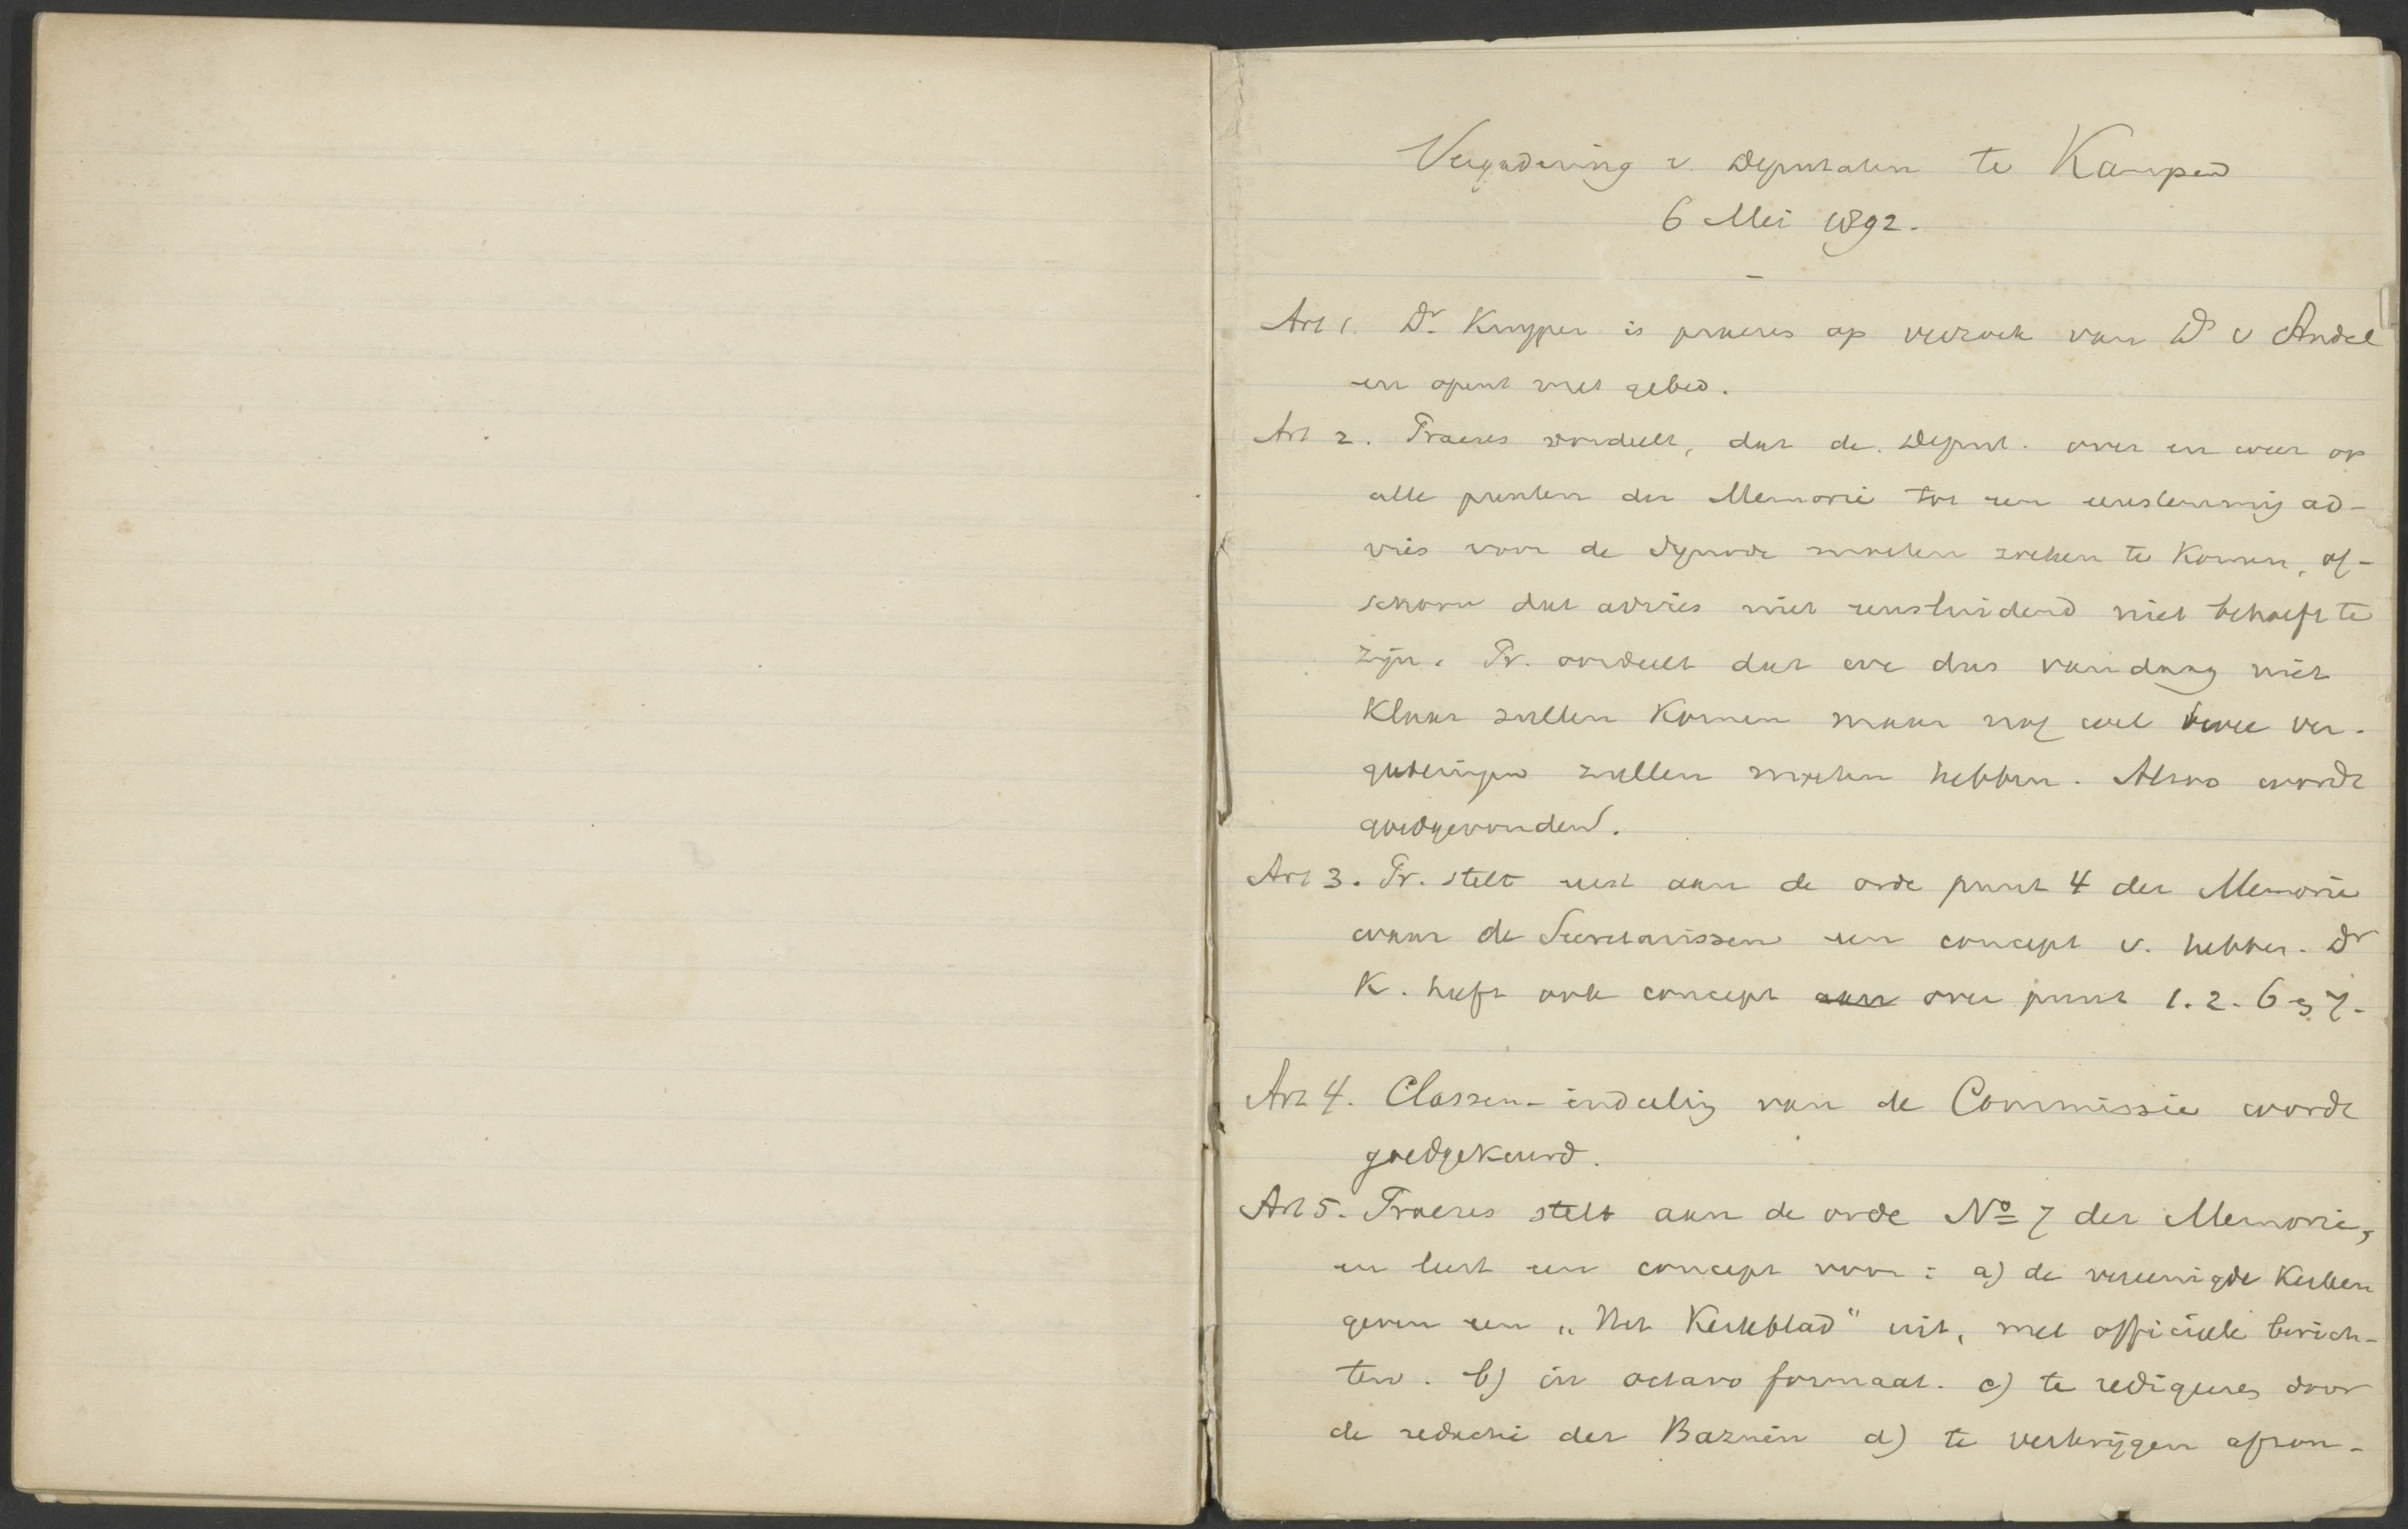 Vergadering v. Deputaten te Kampen
6 Mei 1892.
Art 1. Dr. Kuyper is praeses op verzoek van Ds v Andel
en opent met gebed.
Art 2. Praeses oordeelt, dat de Deput. over en weer op
alle punten der Memorie tot een eenstemmig ad-
vies voor de Synode moeten zoeken te komen, of-
schoon dat advies niet eensluidend niet behoeft te
zijn. Pr. oordeelt dat we dus vandaag niet
klaar zullen komen maar nog wel twee ver-
gaderingen zullen moeten hebben. Alzoo wordt
goedgevonden.
Art 3. Pr. stelt eerst aan de orde punt 4 der Memorie
waar de Secretarissen een concept v. hebben. Dr
K. heeft ook concept aan over punt 1. 2. 6 en 7.
Art 4. Classen-indeeling van de Commissie wordt
goedgekeurd.
Art 5. Praeses stelt aan de orde No 7 der Memorie,
en leest een concept voor: a) de vereenigde Kerken
geven een „Het Kerkblad" uit, met officieele berich-
ten. b) in octavo formaat. c) te redigeeren door
de redactie der Bazuin d) te verkrijgen afzon-